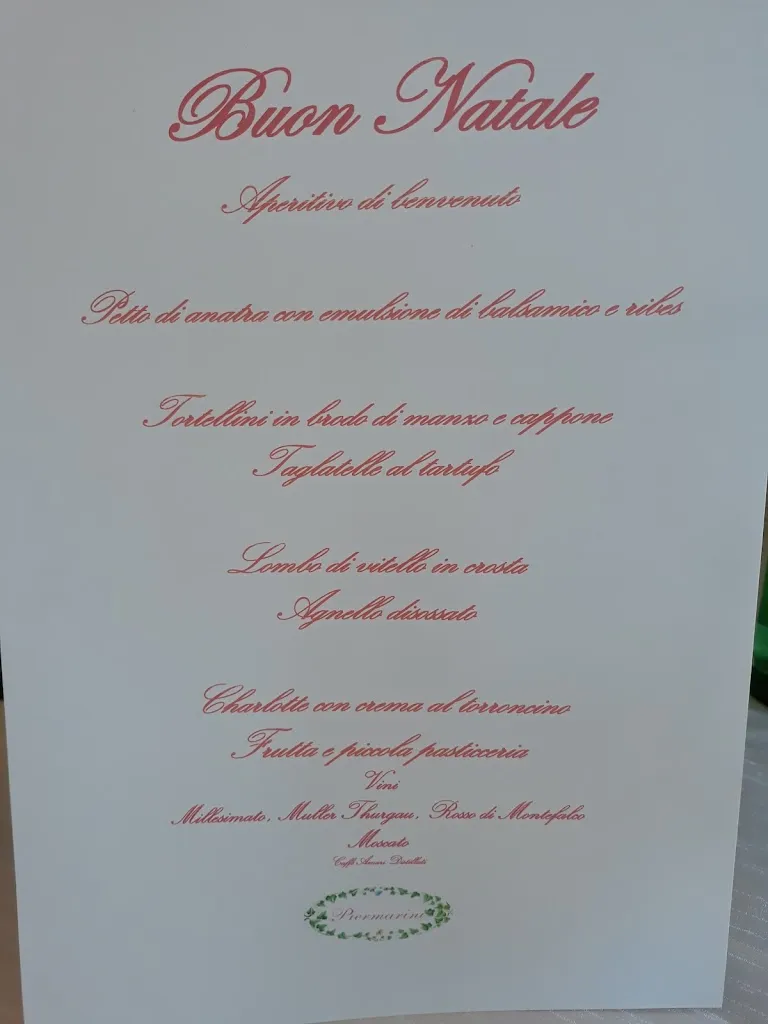 Buon Natale
Aperitivo di benvenuto
Petto di anatra con emulsione di balsamico e ribes
Tortellini in brodo di manzo e cappone
Taglatelle al tartufo
Lombo di vitello in crosta
Agnello disossato
Charlotte con crema al torroncino
Frutta e piccola pasticceria
Vini
Millesimato, Muller Thurgau, Rosso di Montefalco
Moscato
Caffè Amari Distillati
Piermarini